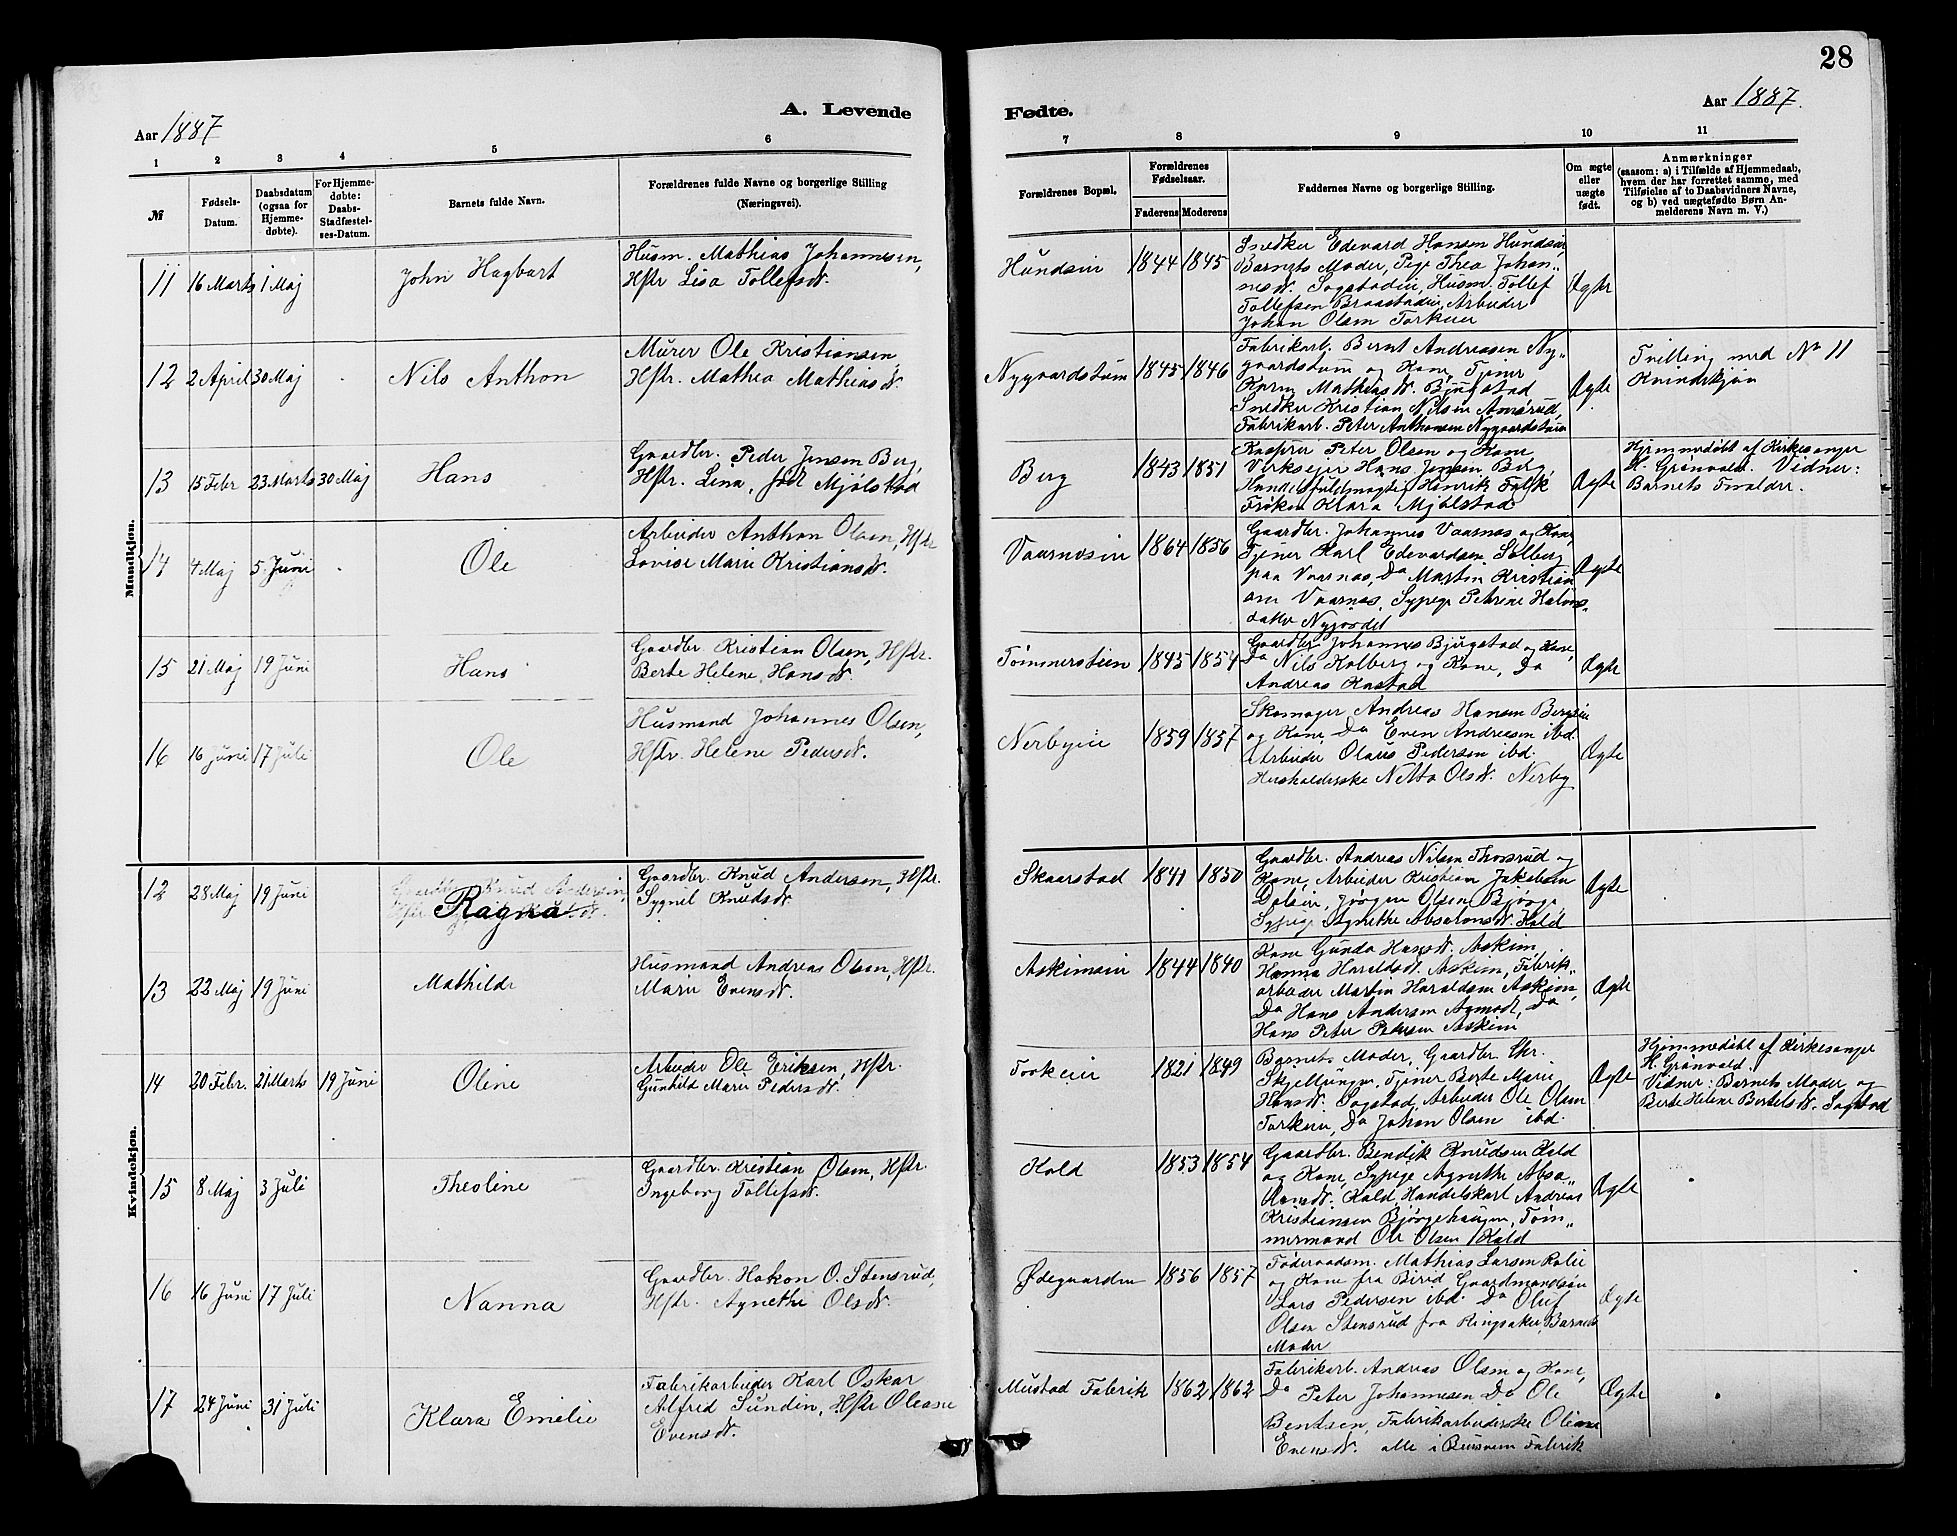 28
Aar 1887
A. Levende
Fødte.
Aar 1887.
1 2 3 4 5 6 7 8 9 10 11
№
Fødsels-
Datum.
Daabsdatum
(ogsaa for
Hjemme-
døbte).
For Hjemme-
døbte:
Daabs-
Stadfæstel-
ses-Datum.
Barnets fulde Navn.
Forældrenes fulde Navne og borgerlige Stilling
(Næringsvei).
Forældrenes Bopæl.
Forældrenes
Fødselsaar.
Faderens Moderens
Faddernes Navne og borgerlige Stilling.
Om ægte
eller
uægte
født.
Anmærkninger
(saasom: a) i Tilfælde af Hjemmedaab,
hvem der har forrettet samme, med
Tilføielse af to Daabsvidners Navne,
og b) ved uægtefødte Børn An-
melderens Navn m. V.)
Mandkjøn.
11 16 Marts 1 Maj
John Hagbart
Husm. Mathias Johannesen,
Hstr Lisa Tollefsdt.
Hundsein
1844 1845
Snedker Edevard Hansen Hundsein,
Barnets Moder, Pige Thea Johan„
nesdt. Sogstadein, Husm. Tollef
Tollefsen Braastadein, Arbeider
Johan Olsen Torkeier
Ægte
12 2 April 30 Maj
Nils Anthon
Murer Ole Kristiansen
Hstr. Mathea Mathiasdt
Nygaardstum
1845 1846
Fabrikarb. Bernt Andreasen Ny„
gaardstum og Kone, Tjener
Karen Mathiasdt. Bjugstad
Snedker Kristian Nilsen Amsrud,
Fabrikarb. Peter Anthonsen Nygaardstum
Ægte
Tvilling med No 11
Kvindekjøn
13 15 Febr 23 Marts 30 Maj
Hans
Gaardbr. Peder Jensen Berg,
Hstr. Lina, født Mjølstad
Berg
1843 1851
Peter Olsen og Kone
Hans Jensen Berg,
Handelsfuldmægtig Henrik Falk
Frøken Klara Mjølstad
Ægte
Hjemmedøbt af Kirkesanger
H. Grønvold. Vidner:
Barnets Forældre.
14 4 Maj 5. Juni
Ole
Arbeider Anthon Olsen, Hstr
Lovise Marie Kristiansdt.
Vaarnæsein
1864 1856
Gaardbr. Johannes Vaarnæs og Kone,
Tjener Karl Edevardsen Solberg
paa Vaarnæs, Do Martin Kristian
sen Vaarnæs, Sypige Petrine Halvors-
datter Nyjordet
Ægte
15 21 Maj 19 Juni
Hans
Gaardbr Kristian Olsen, Hstr.
Berte Helene Hansdt.
Tømmerstien
1845 1854
Gaardbr Johannes Bjugstad og Kone,
Do Nils Kolberg og Kone, Do
Andreas Kastad
Ægte
16 16 Juni 17 Juli
Ole
Husmand Johannes Olsen,
Hstr. Helene Pedersdt.
Nerbyeie
1859 1857
Skomager Andreas Hansen Bergsein
og Kone, Do Even Andreasen ibd
Arbeider Olaus Pedersen ibd.
Husholderske Netta Olsdt. Nerby
Ægte
Kvindekjøn.
12 28 Maj 19 Juni
Ragna
Gaardbr. Knud Andersen, Hstr.
Sygnil Knudsdt
Skaarstad
1841 1850
Gaardbr. Andreas Nilsen Thorsrud og
Kone, Arbeider Kristian Jakobsen
Dølsein, Jørgen Olsen Bjørge,
Sypige Agnethe Absalonsdt. Kold
Ægte
13 22 Maj 19 Juni
Mathilde
Husmand Andreas Olsen, Hstr.
Marie Evensdt.
Askimsein
1844 1840
Kone Gunda Hansdt. Askim,
Hanna Haroldsdt. Askim, Fabrik„
arbeider Martin Haroldsen Askim,
Do Hans Andersen Aamodt, Do
Hans Peter Pedersen Askim
Ægte
14 20 Febr. 21 Marts 19 Juni
Oline
Arbeider Ole Eriksen, Hstr.
Gunhild Marie Pedersdt.
Torkeier
1821 1849
Barnets Moder, Gaardbr. Chr.
Skjellungen, Tjener Berte Marie
Hansdt. Sogstad, Arbeider Ole Olsen
Torkeie, Do Johan Olsen ibd.
Ægte
Hjemmedøbt af Kirkesanger
H. Grønvold.
Vidner: Barnets Moder og
Berte Helene Bertelsdt. Sogstad
15 8 Maj 3 Juli
Theoline
Gaardbr. Kristian Olsen, Hstr.
Ingeborg Tollefsdt.
Kold
1853 1854
Gaardbr. Bendik Knudsen Kold
og Kone, Sypige Agnethe Absa„
lonsdt. Kold, Handelskarl Andreas
Kristiansen Bjørgehaugen, Tøm„
mermand Ole Olsen Kold
Ægte
16 16 Juni 17 Juli
Nanna
Gaardbr. Hakon O. Stensrud,
Hstr. Agnethe Olsdt.
Ødegaarden
1856 1857
Føderaadsm. Mathias Larsen
og Kone fra Birid, Gaardmandsøn
Lars Pedersen ibd. Do Oluf
Olsen Stensrud fra Ringsaker, Barnets
Moder
Ægte
17 24 Juni 31 Juli
Klara Emelie
Fabrikarbeider Karl Oskar
Alfred Sundin, Hstr Oleane
Evensdt.
Mustad Fabrik
1862 1862
Fabrikarb. Andreas Olsen og Kone,
Do Peter Johannesen Do Ole
Bentsen, Fabrikarbeiderske Oleane
Evensdt. alle i Fabrik
Ægte